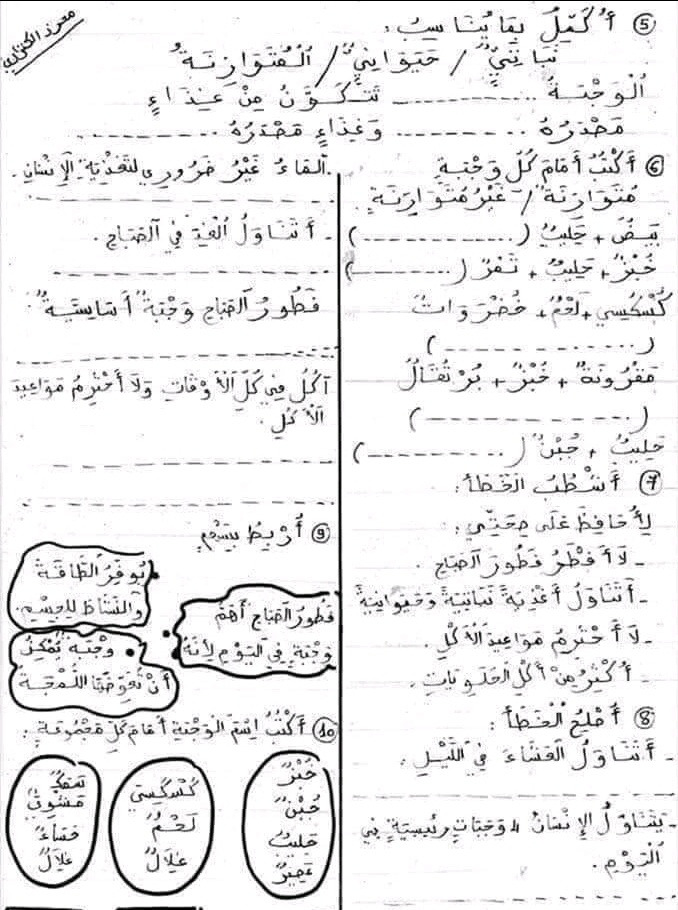 محرز الكنزاري
⑤ أُكَمِّلُ بِمَا يُنَاسِبُ :
نَبَاتِيٌّ / حَيَوَانِيٌّ / الْمُتَوَازِنَةُ
الْوَجْبَةُ ............ تَتَكَوَّنُ مِنْ غِذَاءٍ
مَصْدَرُهُ ............ وَغِذَاءٍ مَصْدَرُهُ ............
⑥ أَكْتُبُ أَمَامَ كُلِّ وَجْبَةٍ
مُتَوَازِنَةٌ / غَيْرُ مُتَوَازِنَةٍ
بَيْضٌ + حَلِيبٌ (............)
خُبْزٌ + حَلِيبٌ + تَمْرٌ (............)
كُسْكُسِي + لَحْمٌ + خُضْرَوَاتٌ
(............)
مَقْرُونَةٌ + خُبْزٌ + بُرْتُقَالٌ
(............)
حَلِيبٌ + جُبْنٌ (............)
⑦ أَشْطُبُ الْخَطَأَ :
لِأُحَافِظَ عَلَى صِحَّتِي :
- لَا أَفْطُرُ فَطُورَ الصَّبَاحِ .
- أَتَنَاوَلُ أَغْذِيَةً نَبَاتِيَّةً وَحَيَوَانِيَّةً
- لَا أَحْتَرِمُ مَوَاعِيدَ الْأَكْلِ .
- أُكْثِرُ مِنْ أَكْلِ الْحَلَوِيَّاتِ .
⑧ أُصْلِحُ الْخَطَأَ :
- أَتَنَاوَلُ الْعَشَاءَ فِي اللَّيْلِ .
- يَتَنَاوَلُ الْإِنْسَانُ 4 وَجَبَاتٍ رَئِيسِيَّةٍ فِي
الْيَوْمِ .
- الْمَاءُ غَيْرُ ضَرُورِي لِتَغْذِيَةِ الْإِنْسَانِ .
- أَتَنَاوَلُ الْغَدَاءَ فِي الصَّبَاحِ .
فَطُورُ الصَّبَاحِ وَجْبَةٌ أَسَاسِيَّةٌ .
آكُلُ فِي كُلِّ الْأَوْقَاتِ وَلَا أَحْتَرِمُ مَوَاعِيدَ
الْأَكْلِ .
⑨ أَرْبِطُ بِسَهْمٍ
يُوَفِّرُ الطَّاقَةَ
وَالنَّشَاطَ لِلْجِسْمِ .
فَطُورُ الصَّبَاحِ أَهَمُّ
وَجْبَةٍ فِي الْيَوْمِ لِأَنَّهُ
وَجْبَةٌ يُمْكِنُ
أَنْ تُعَوِّضَهَا اللُّمْجَةُ
⑩ أَكْتُبُ اِسْمَ الْوَجْبَةِ أَمَامَ كُلِّ مَجْمُوعَةٍ :
خُبْزٌ
جُبْنٌ
حَلِيبٌ
عَصِيرٌ
كُسْكُسِي
لَحْمٌ
غِلَالٌ
سَمَكٌ
مَشْوِيٌّ
حَسَاءٌ
غِلَالٌ